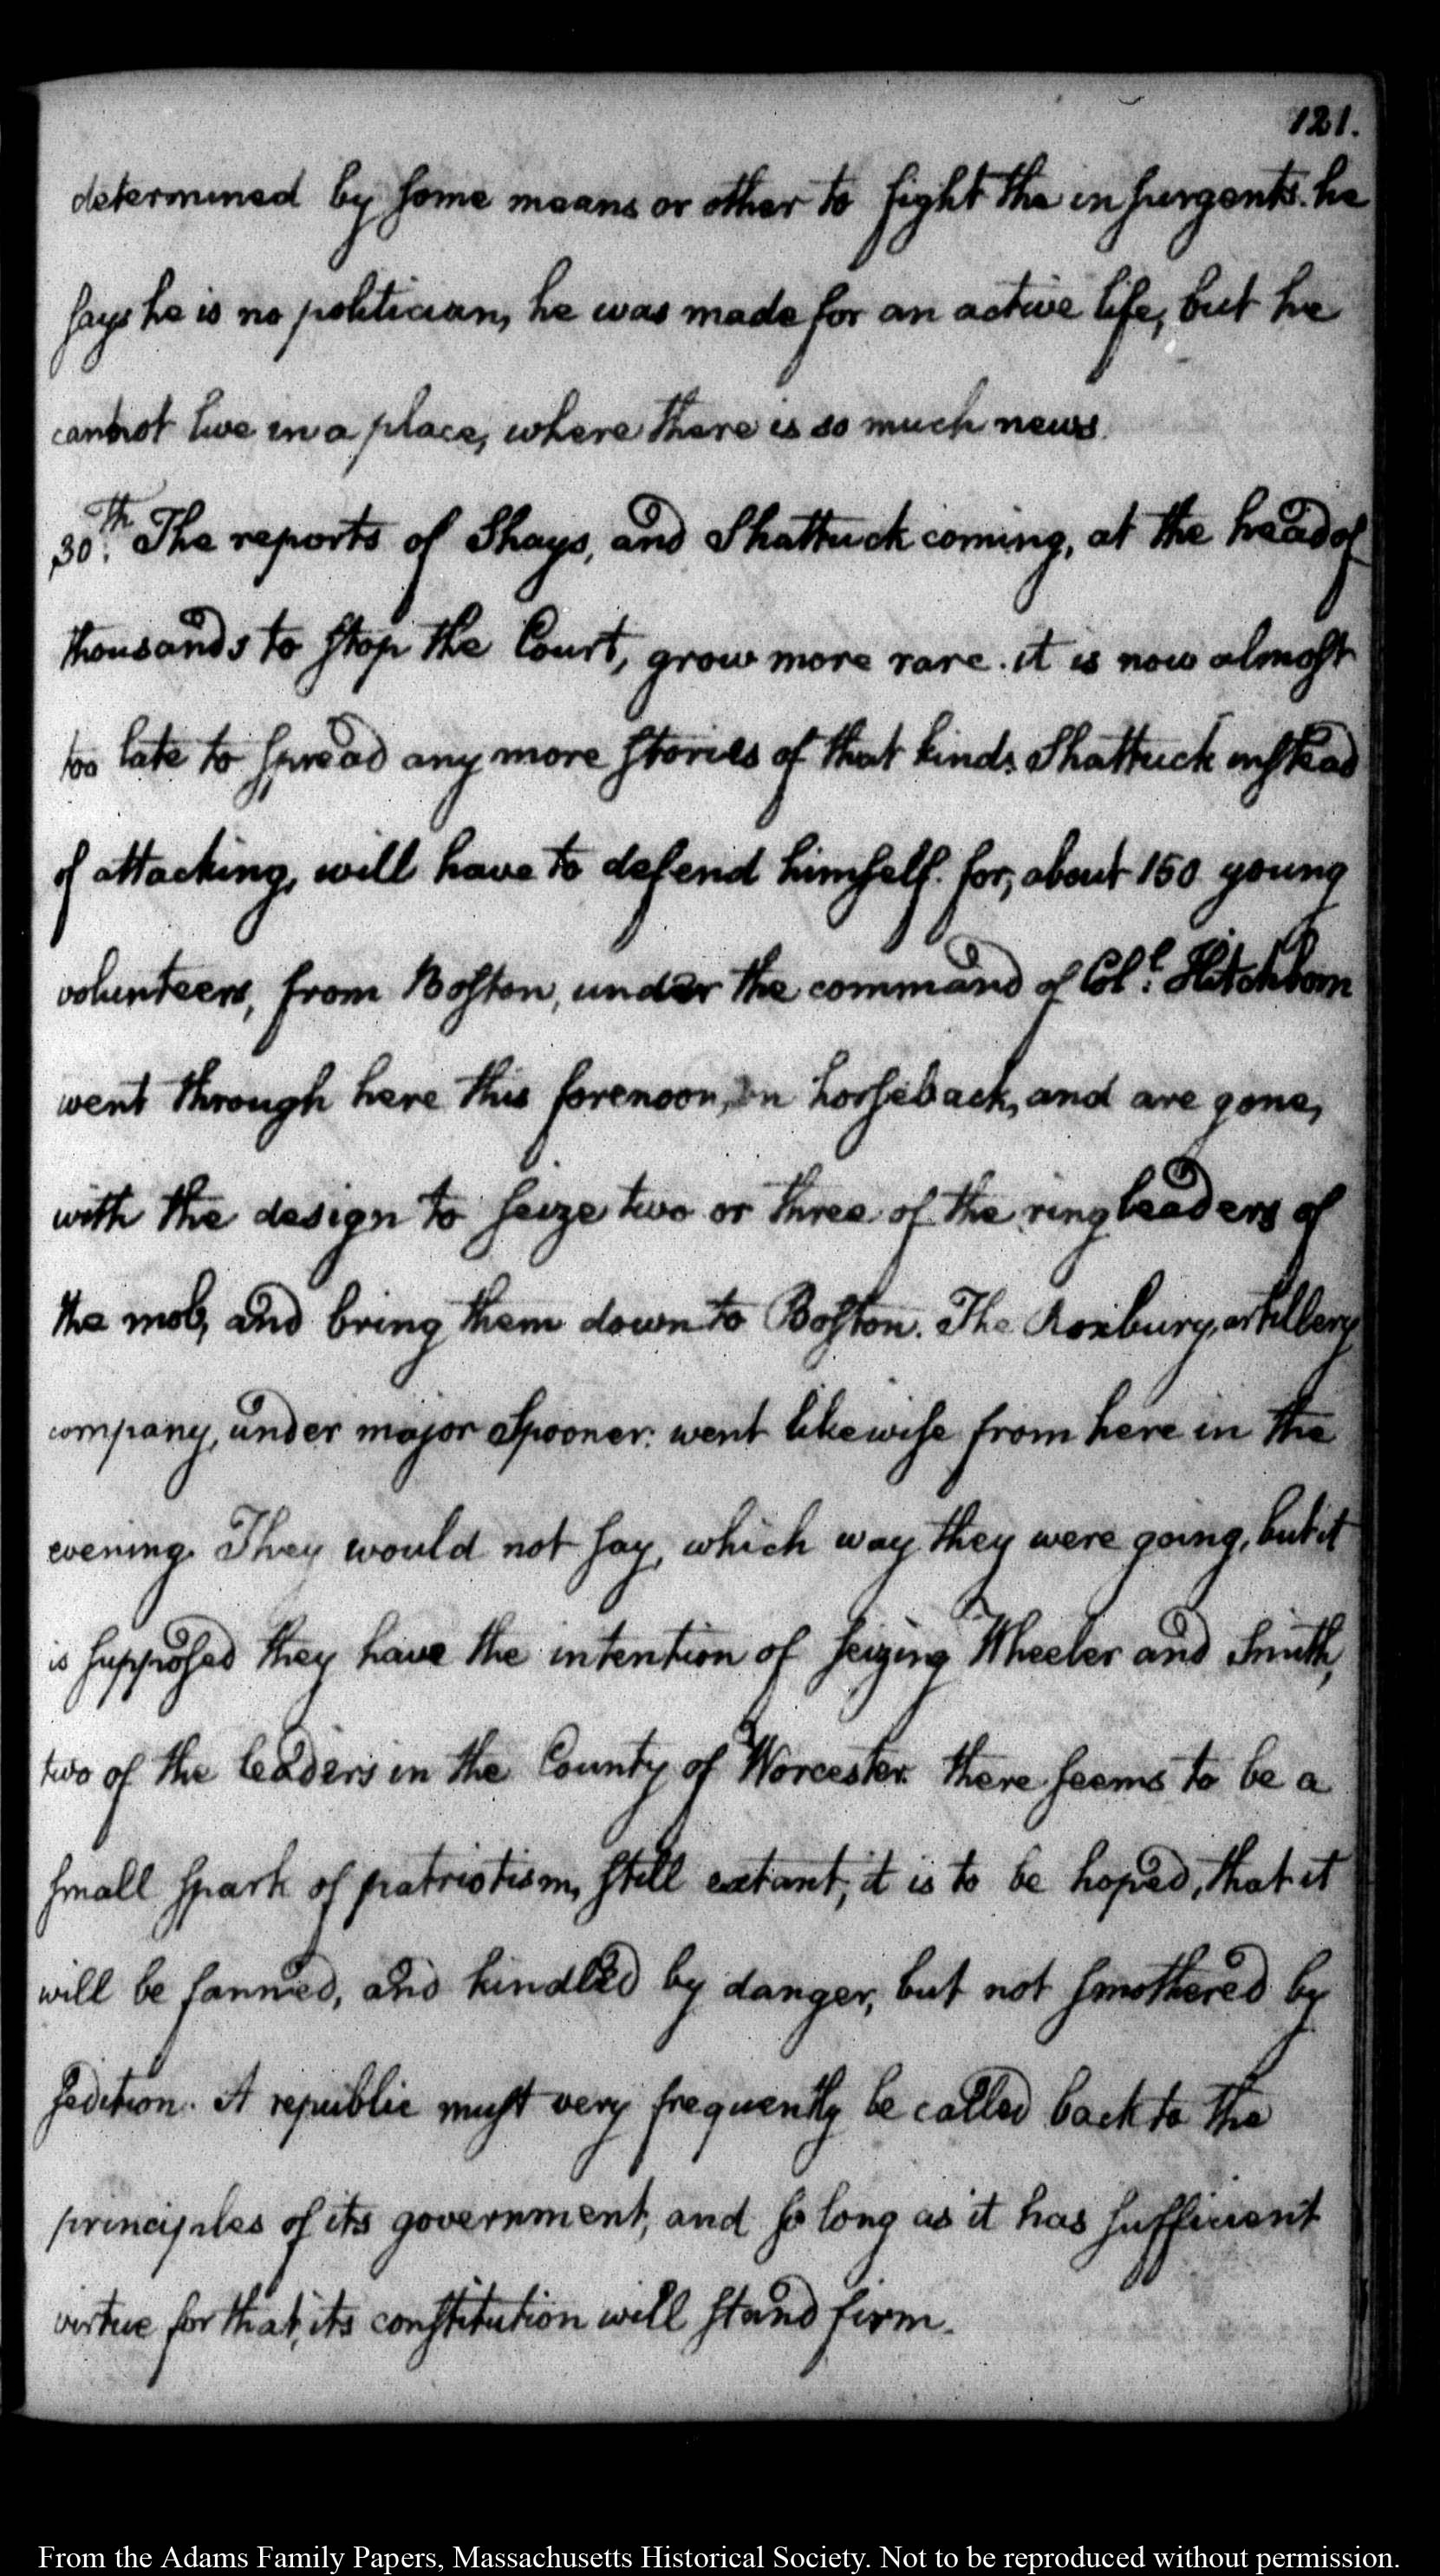 121.
determined by some means or other to fight the insurgents. he
says he is no politician, he was made for an active life, but he
cannot live in a place, where there is so much news.
30th. The reports of Shays, and Shattuck coming, at the head of
thousands to stop the Court, grow more rare. it is now almost
too late to spread any more stories of that kind. Shattuck instead
of attacking, will have to defend himself. for, about 150 young
volunteers, from Boston, under the command of Coll. Hitchborn
went through here this forenoon, on horseback, and are gone,
with the design to seize two or three of the ringleaders of
the mob, and bring them down to Boston. The Roxbury, artillery
company, under major Spooner. went likewise from here in the
evening. They would not say, which way they were going, but it
is supposed they have the intention of seizing Wheeler and Smith,
two of the leaders in the County of Worcester. there seems to be a
small spark of patriotism, still extant; it is to be hoped, that it
will be fanned, and kindled by danger, but not smothered by
sedition. A republic must very frequently be called back to the
principles of its government, and so long as it has sufficient
virtue for that, its constitution will stand firm.
From the Adams Family Papers, Massachusetts Historical Society. Not to be reproduced without permission.